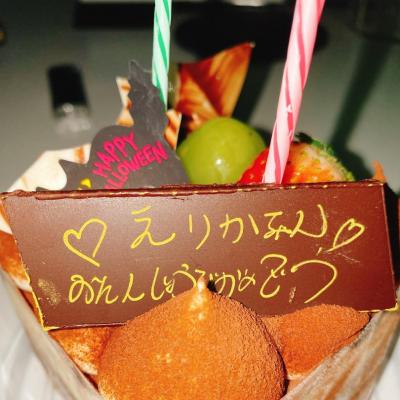 HAPPY
HALLOWEEN
♡えりかちゃん♡
おたんじょうびおめでとう